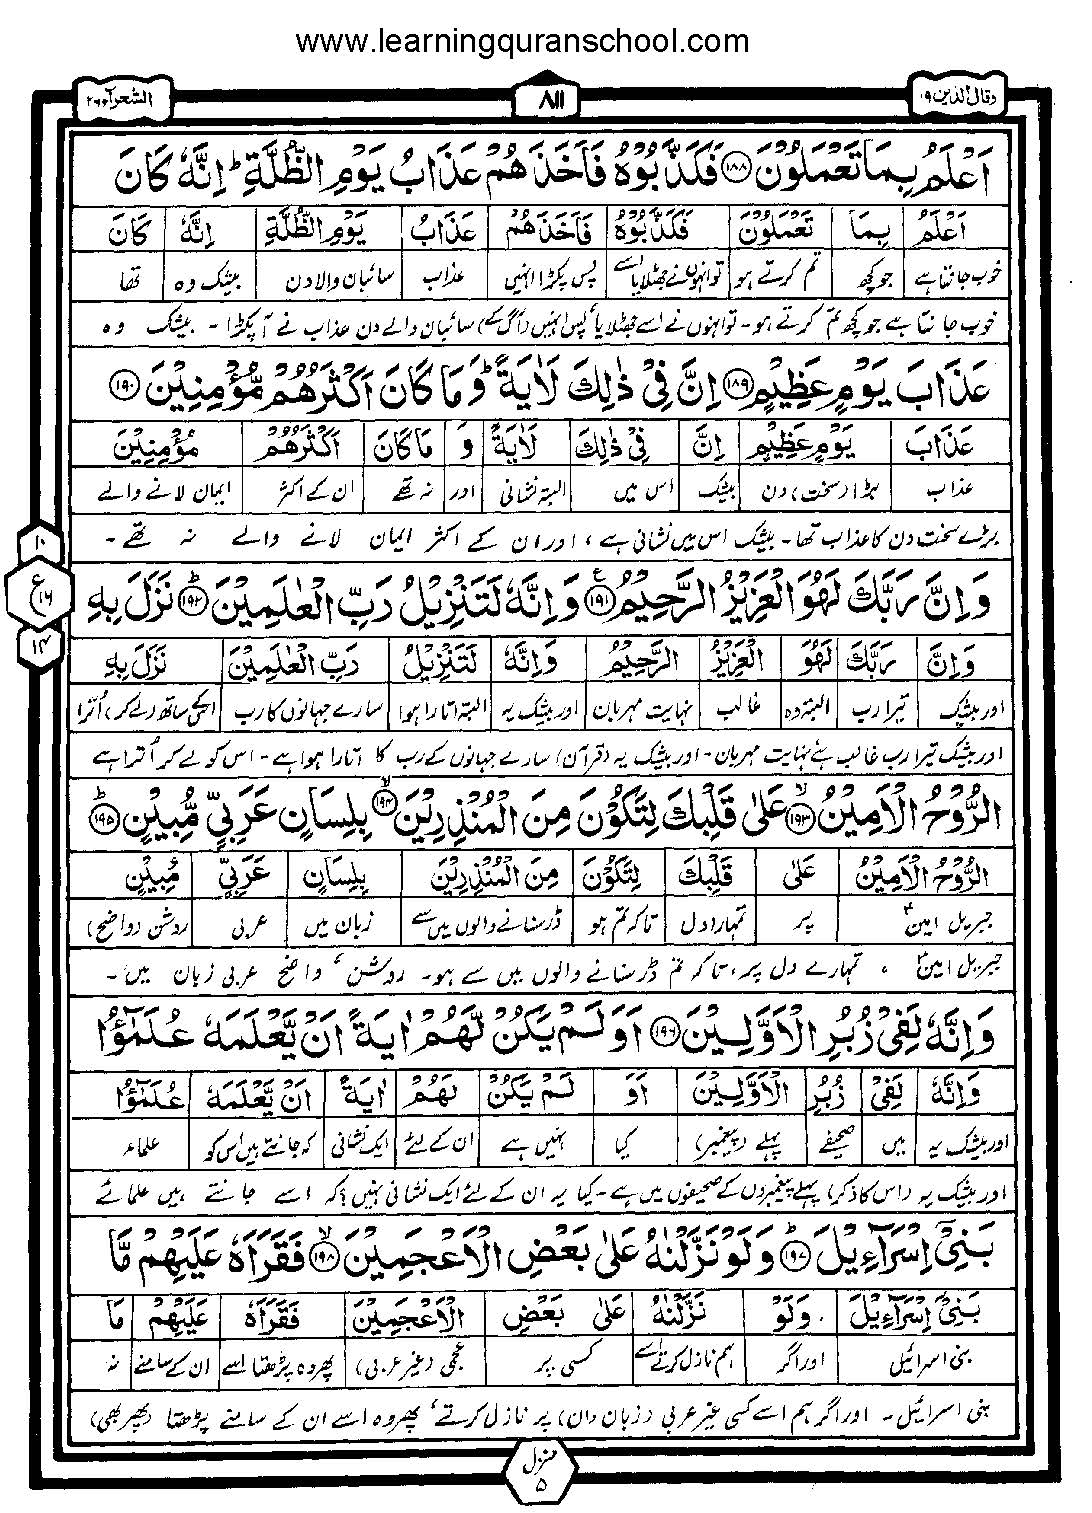 www.learningquranschool.com
وقال الذین ۱۹
۸۱۱
الشعرآء ۲۶
اَعْلَمُ بِمَا تَعْمَلُوْنَ ۝۱۸۸ فَكَذَّبُوْهُ فَاَخَذَهُمْ عَذَابُ يَوْمِ الظُّلَّةِ ؕ اِنَّهٗ كَانَ
اَعْلَمُ بِمَا تَعْمَلُوْنَ فَكَذَّبُوْهُ فَاَخَذَهُمْ عَذَابُ يَوْمِ الظُّلَّةِ اِنَّهٗ كَانَ
خوب جانتا ہے جو کچھ تم کرتے ہو توانہوں نے جھٹلایا اسے پس پکڑا انہیں عذاب سائبان والا دن بیشک وہ تھا
خوب جانتا ہے جو کچھ تم کرتے ہو۔ توانہوں نے اسے جھٹلایا، پس انہیں (آگ کے) سائبان والے دن عذاب نے آ پکڑا۔ بیشک وہ
عَذَابَ يَوْمٍ عَظِيْمٍ ۝۱۸۹ اِنَّ فِيْ ذٰلِكَ لَاٰيَةً ؕ وَ مَا كَانَ اَكْثَرُهُمْ مُّؤْمِنِيْنَ ۝۱۹۰
عَذَابَ يَوْمٍ عَظِيْمٍ اِنَّ فِيْ ذٰلِكَ لَاٰيَةً وَ مَا كَانَ اَكْثَرُهُمْ مُؤْمِنِيْنَ
عذاب بڑا (سخت) دن بیشک اس میں البتہ نشانی اور نہ تھے ان کے اکثر ایمان لانے والے
بڑے سخت دن کا عذاب تھا۔ بیشک اس میں نشانی ہے، اور ان کے اکثر ایمان لانے والے نہ تھے۔
۱۰
ع
۱۶
۱۴
وَ اِنَّ رَبَّكَ لَهُوَ الْعَزِيْزُ الرَّحِيْمُ ۝۱۹۱ ع وَ اِنَّهٗ لَتَنْزِيْلُ رَبِّ الْعٰلَمِيْنَ ۝۱۹۲ؕ نَزَلَ بِهِ
وَ اِنَّ رَبَّكَ لَهُوَ الْعَزِيْزُ الرَّحِيْمُ وَ اِنَّهٗ لَتَنْزِيْلُ رَبِّ الْعٰلَمِيْنَ نَزَلَ بِهِ
اور بیشک تیرا رب البتہ وہ غالب نہایت مہربان اور بیشک یہ البتہ اتارا ہوا سارے جہانوں کا رب اسکے ساتھ (لے کر) اترا
اور بیشک تیرا رب غالب ہے نہایت مہربان۔ اور بیشک یہ (قرآن) سارے جہانوں کے رب کا اتارا ہوا ہے۔ اس کو لے کر اُترا ہے
الرُّوْحُ الْاَمِيْنُ ۝۱۹۳ۙ عَلٰى قَلْبِكَ لِتَكُوْنَ مِنَ الْمُنْذِرِيْنَ ۝۱۹۴ۙ بِلِسَانٍ عَرَبِيٍّ مُّبِيْنٍ ۝۱۹۵ؕ
الرُّوْحُ الْاَمِيْنُ عَلٰى قَلْبِكَ لِتَكُوْنَ مِنَ الْمُنْذِرِيْنَ بِلِسَانٍ عَرَبِيٍّ مُبِيْنٍ
جبریل امینؑ پر تمہارا دل تاکہ تم ہو ڈر سنانے والوں میں سے زبان میں عربی روشن (واضح)
جبریل امینؑ ، تمہارے دل پر، تاکہ تم ڈر سنانے والوں میں سے ہو۔ روشن، واضح عربی زبان میں۔
وَ اِنَّهٗ لَفِيْ زُبُرِ الْاَوَّلِيْنَ ۝۱۹۶ اَوَ لَمْ يَكُنْ لَّهُمْ اٰيَةً اَنْ يَّعْلَمَهٗ عُلَمٰٓؤُا
وَ اِنَّهٗ لَفِيْ زُبُرِ الْاَوَّلِيْنَ اَوَ لَمْ يَكُنْ لَهُمْ اٰيَةً اَنْ يَّعْلَمَهٗ عُلَمٰٓؤُا
اور بیشک یہ میں صحیفے پہلے (پیغمبر) کیا نہیں ہے ان کے لئے ایک نشانی کہ جانتے ہیں اس کو علماء
اور بیشک یہ (اس کا ذکر) پہلے پیغمبروں کے صحیفوں میں ہے۔ کیا یہ ان کے لئے ایک نشانی نہیں؟ کہ اسے جانتے ہیں علمائے
بَنِيْٓ اِسْرَآءِيْلَ ۝۱۹۷ؕ وَ لَوْ نَزَّلْنٰهُ عَلٰى بَعْضِ الْاَعْجَمِيْنَ ۝۱۹۸ۙ فَقَرَاَهٗ عَلَيْهِمْ مَّا
بَنِيْٓ اِسْرَآءِيْلَ وَ لَوْ نَزَّلْنٰهُ عَلٰى بَعْضِ الْاَعْجَمِيْنَ فَقَرَاَهٗ عَلَيْهِمْ مَا
بنی اسرائیل اور اگر ہم نازل کرتے اسے کسی پر عجمی (غیر عربی) پھر وہ پڑھتا اسے ان کے سامنے نہ
بنی اسرائیل۔ اور اگر ہم اسے کسی غیر عربی (زبان دان) پر نازل کرتے، پھر وہ اسے ان کے سامنے پڑھتا (پھر بھی)
منزل ۵